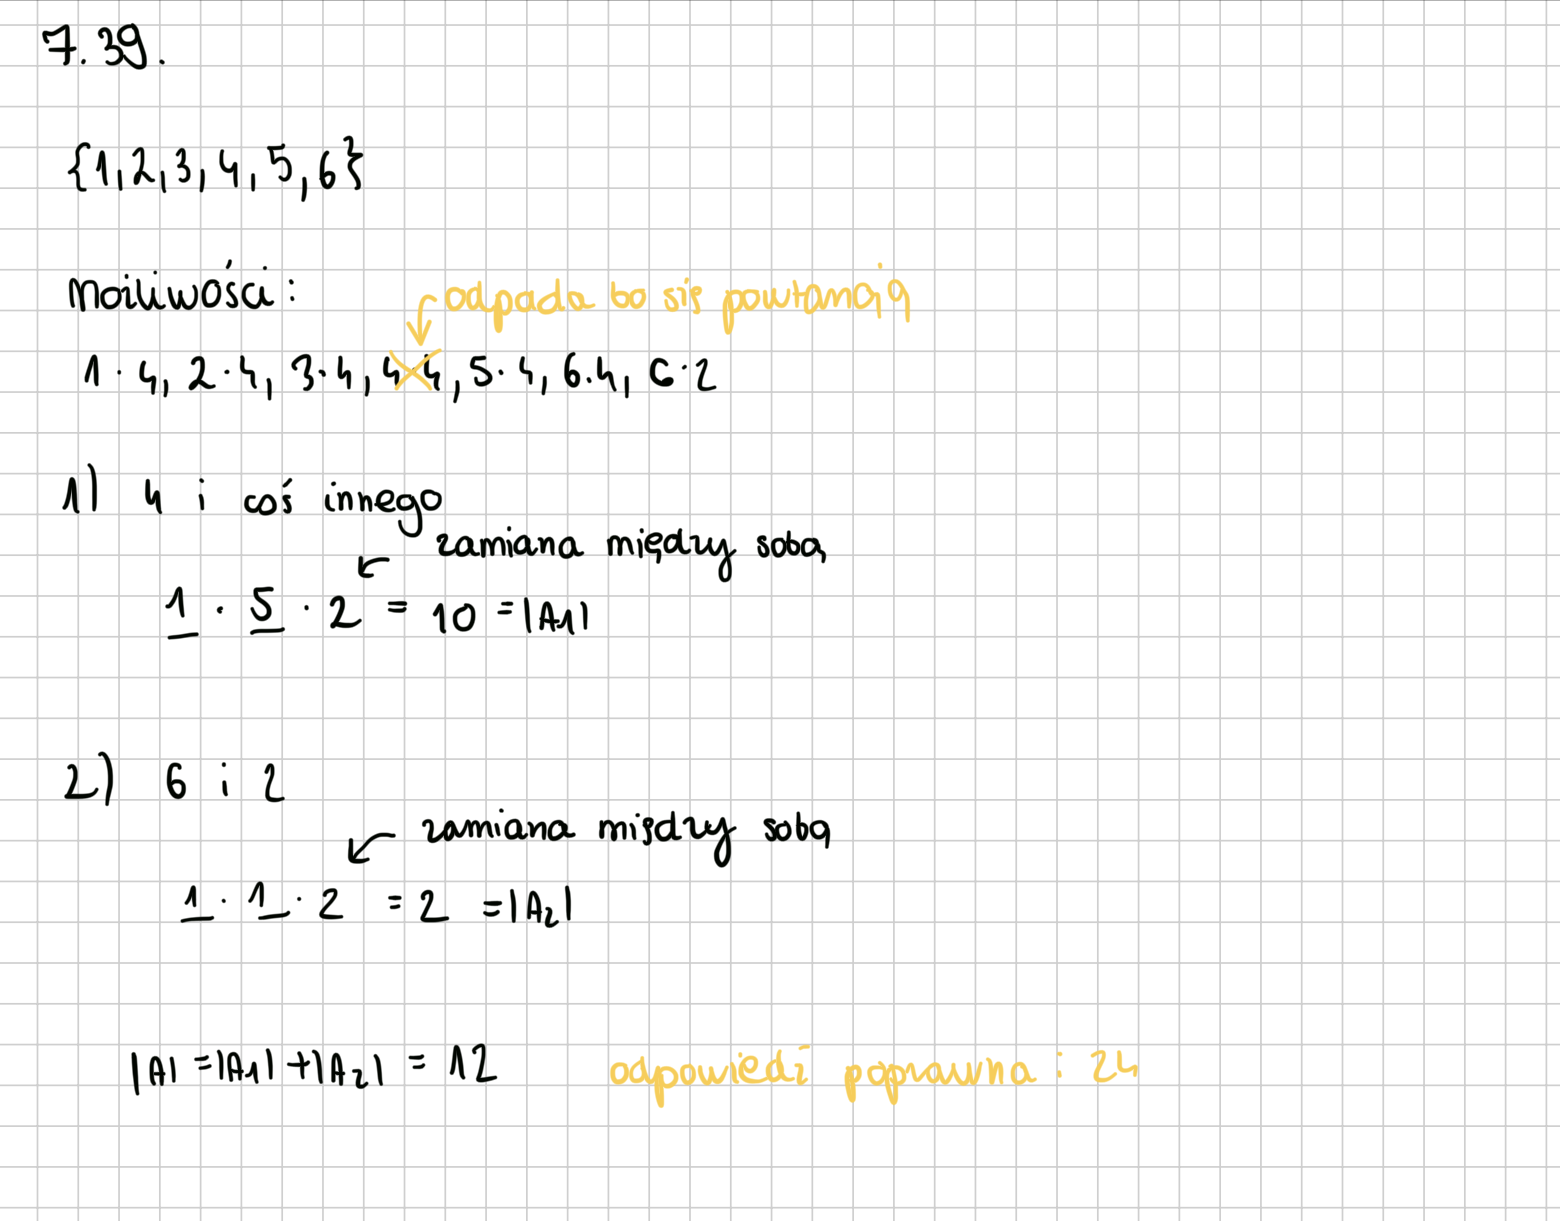 7.39.
{1,2,3,4,5,6}
możliwości:
odpada bo się powtarzają
1·4, 2·4, 3·4, 4·4, 5·4, 6·4, 6·2
1) 4 i coś innego
zamiana między sobą
1 · 5 · 2 = 10 = |A1|
2) 6 i 2
zamiana między sobą
1 · 1 · 2 = 2 = |A2|
|A| = |A1| + |A2| = 12 odpowiedź poprawna : 24